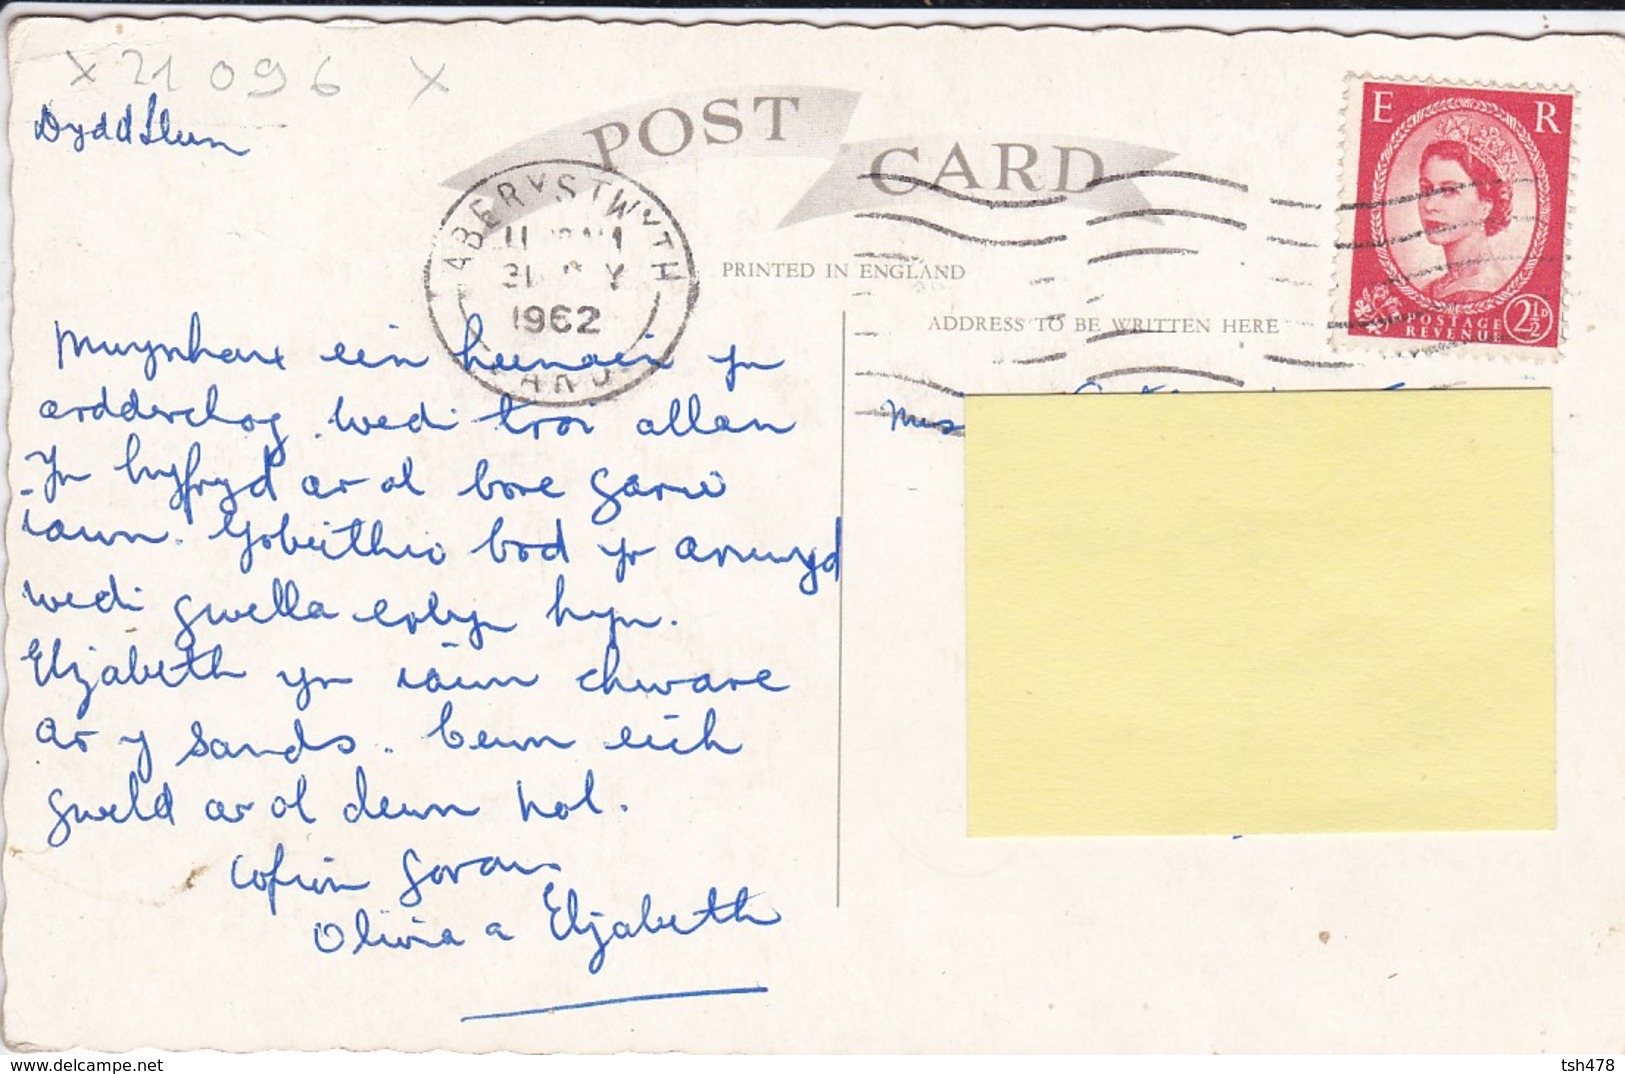 x 21 096 x
Dydd Llun
POST CARD
ABERYSTWYTH
1962
PRINTED IN ENGLAND
ADDRESS TO BE WRITTEN HERE
E R
POSTAGE
REVENUE
2½D
Miss
Mwynhau ein hunain yn
ardderchog. wedi troi allan
Yn hyfryd ar ol bore garw
iawn. Gobeithio bod yr annwyd
wedi gwella erbyn hyn.
Elizabeth yn iawn chware
ar y sands. Cewn eich
gweld ar ol dewn nol.
Cofion gorau
Olivia a Elizabeth
www.delcampe.net
tsh478